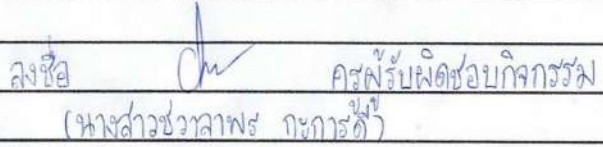 ลงชื่อ ครูผู้รับผิดชอบกิจกรรม
(นางสาวชวาลาพร กะการดี)